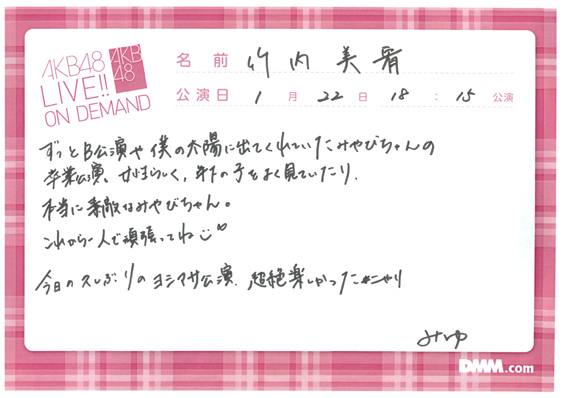 AKB48
LIVE!!
ON DEMAND
AKB
48
名前 竹内美宥
公演日 1月22日 18:15公演
ずっとB公演や僕の太陽に出てくれていたみやびちゃんの
卒業公演、女の子らしく、年下の子をよく見ていたり、
本当に素敵なみやびちゃん。
これから一人で頑張ってね
今日の久しぶりのヨシマサ公演、超絶楽しかった#ニヤリ
みゆ
DMM.com